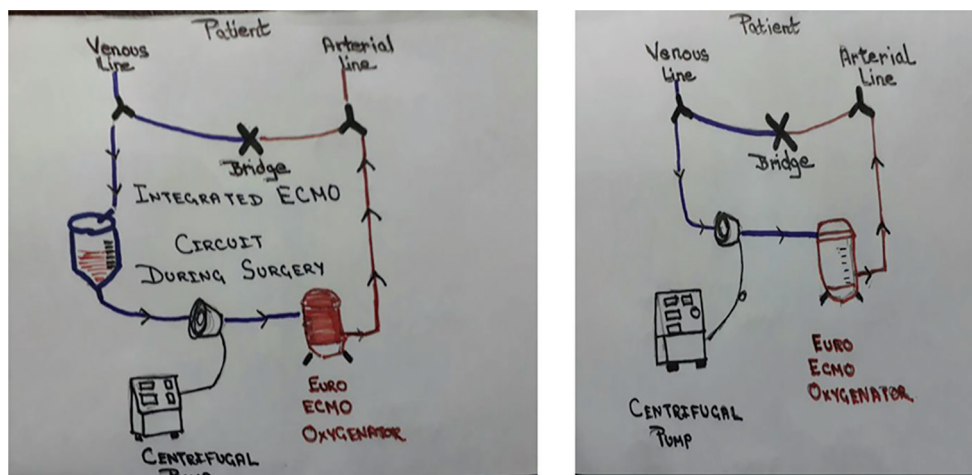 Patient
Venous
Line
Arterial
Line
Bridge
INTEGRATED ECMO
CIRCUIT
DURING SURGERY
EURO
ECMO
OXYGENATOR
CENTRIFUGAL
PUMP
Patient
Venous
Line
Arterial
Line
Bridge
EURO
ECMO
OXYGENATOR
CENTRIFUGAL
PUMP